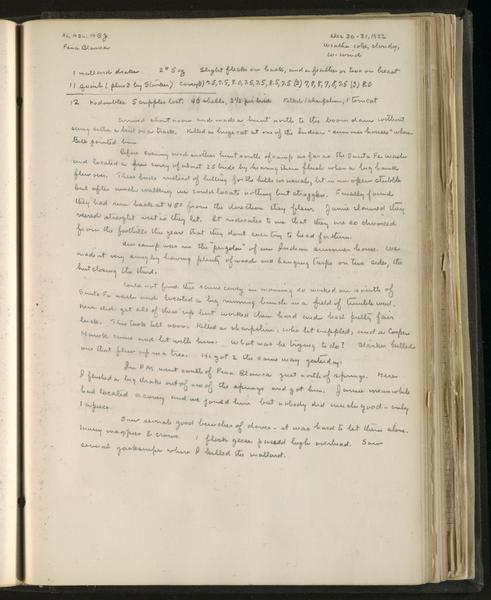 AL, ASL, HBJ Dec 30-31, 1922
Pena Blanca Weather cold, cloudy,
W. wind
1 mallard drake 2# 5 oz Slight flecks on back, and a feather or two on breast
11 quail (plus 2 by
12 Kodombles 5 cripples lost 40 shells, 3½ per bird Killed 1 sharpshin, 1 tomcat
Arrived about noon and made a hunt north to the boom dam without
seeing either a bird or a track. Killed a huge cat at one of the Indian "summer houses" where
pointed him
Before evening made another hunt north of camp as far as the Santa Fe wash
and located a fine covey of about 25 birds by hearing them flush when a big hawk
flew over. These birds instead of hitting for the hills as usual, lit in an open stubble
but after much walking we could locate nothing but stragglers. Finally found
they had run back at 45° from the direction they flew. Jamie claimed they
veered straight west as they lit. It indicates to me that they are so divorced
from the foothills this year that they dont even try to head for them.
Our camp was in the "pergola" of an Indian summer house. We
made it very snug by having plenty of wood and hanging tarps on two sides, the
hut closing the third.
Could not find the same covey in morning so worked on south of
Santa Fe wash and located a big running bunch in a field of tumble weed.
Hard did get all of these up but worked them hard and had pretty fair
luck. This took till noon. Killed a sharpshin, who lit crippled, and a Cooper
Hawk came and lit with him. What was he trying to do? killed
one that flew up in a tree. He got 2 the same way yesterday.
In P.M. went south of Pena Blanca just north of springs. Here
I flushed a big drake out of one of the springs and got him. Jamie meanwhile
had located a covey and we joined him but nobody did much good - only
1 apiece.
Saw several good bunches of doves - it was hard to let them alone.
Many magpies & crows. 1 flock geese passed high overhead. Saw
several jacksnipe where I killed the mallard.